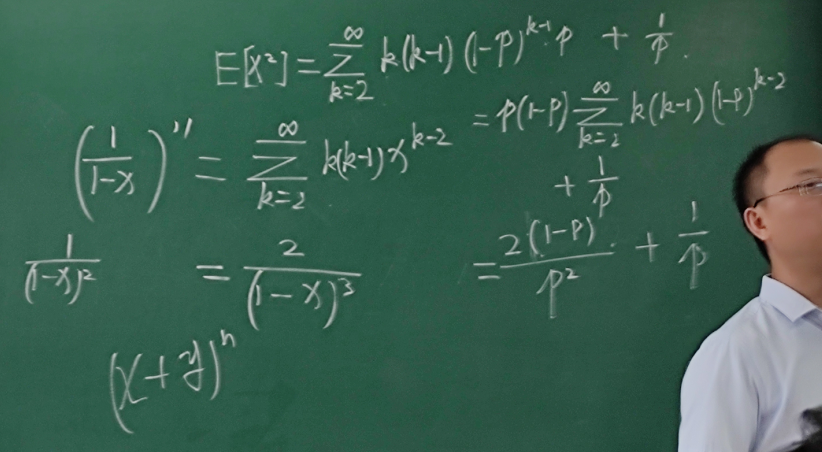 E[X²] = ∑_{k=2}^{∞} k(k-1)(1-p)^{k-1} p + 1/p.
= p(1-p) ∑_{k=2}^{∞} k(k-1)(1-p)^{k-2}
+ 1/p
= 2(1-p)/p² + 1/p
(1/(1-x))'' = ∑_{k=2}^{∞} k(k-1)x^{k-2}
1/(1-x)² = 2/(1-x)³
(x+y)^n